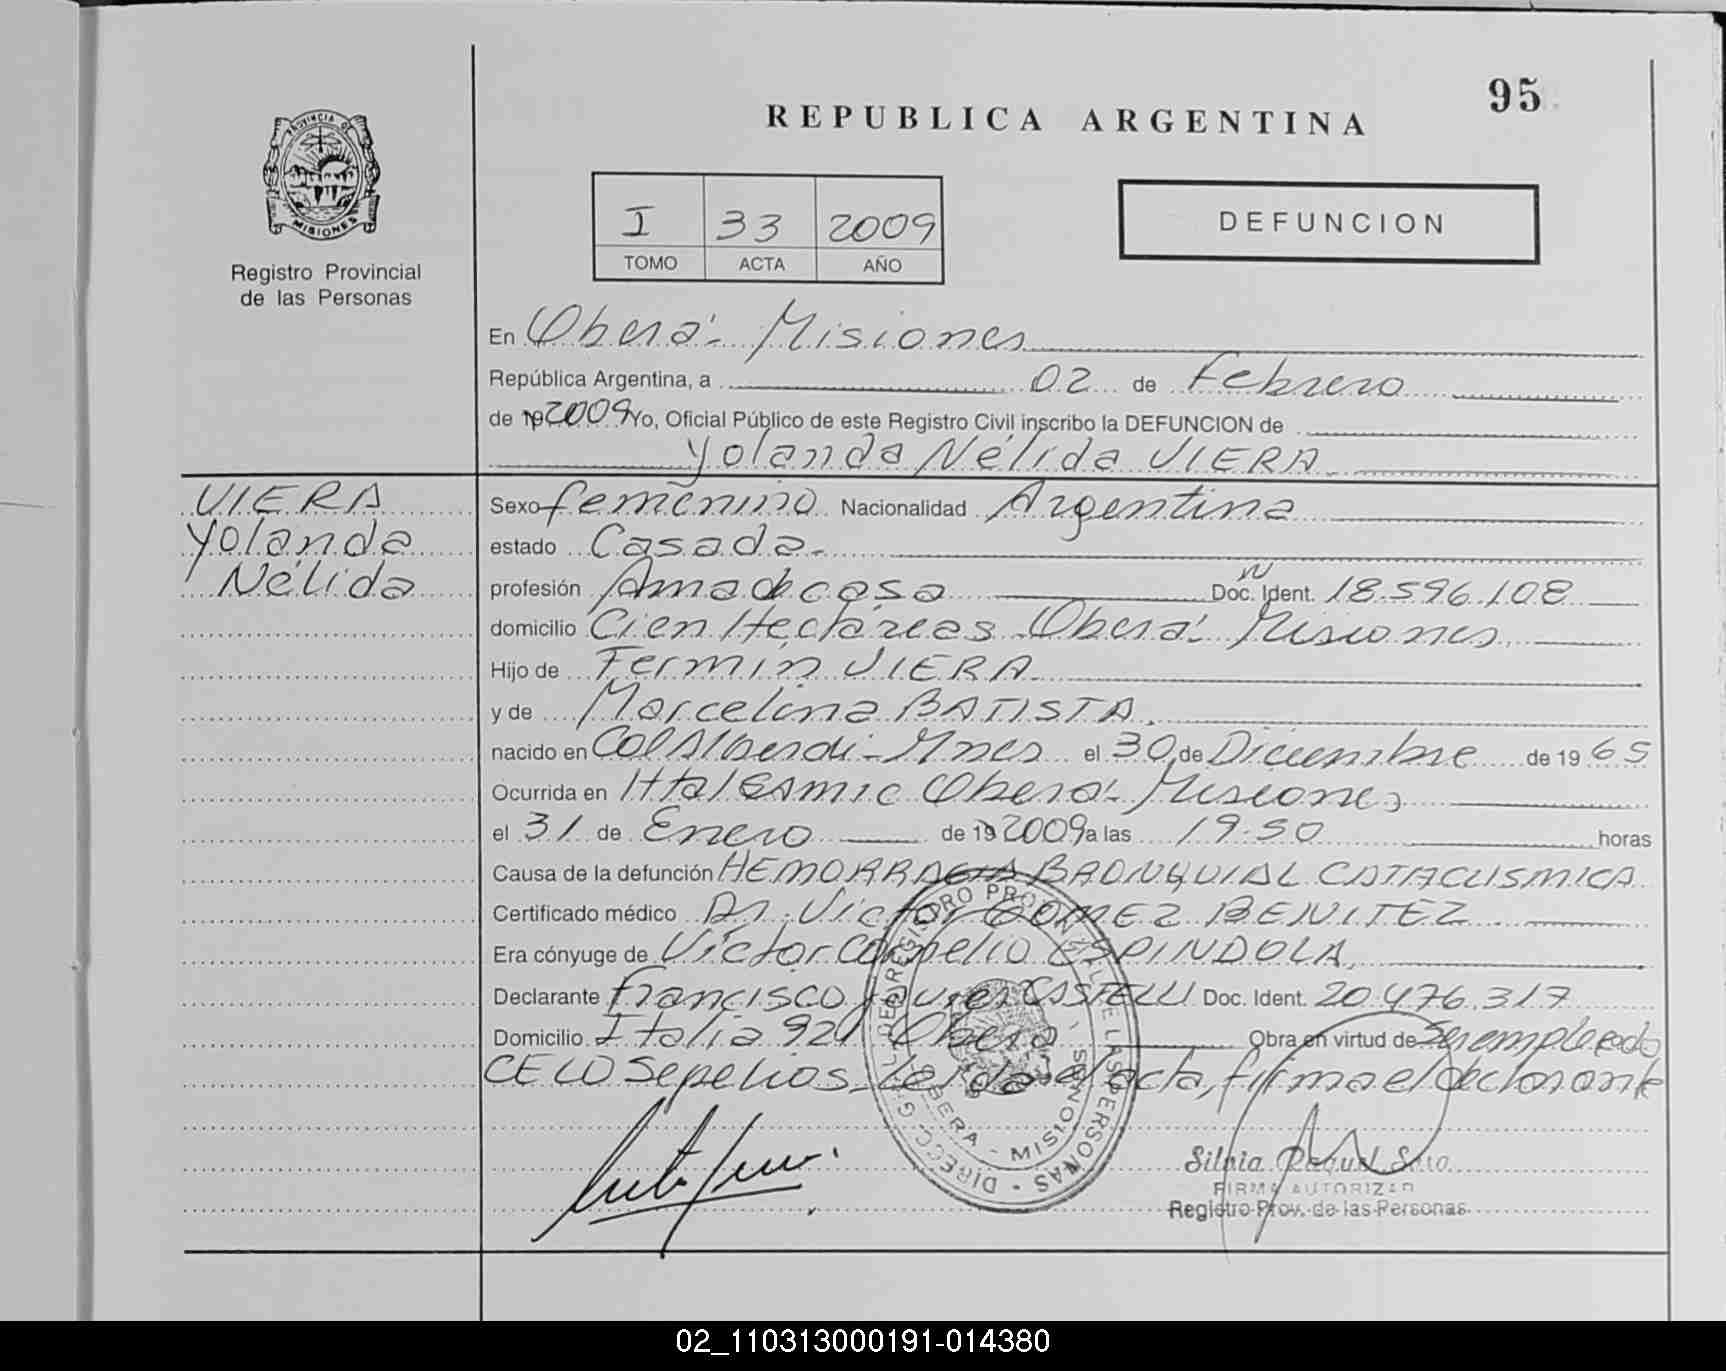 95
REPUBLICA ARGENTINA
PROVINCIA DE
MISIONES
Registro Provincial
de las Personas
I 33 2009
TOMO ACTA AÑO
DEFUNCION
En Oberá - Misiones
República Argentina, a 02 de Febrero
de 19 2009 Yo, Oficial Público de este Registro Civil inscribo la DEFUNCION de
Yolanda Nélida VIERA
VIERA
Yolanda
Nélida
Sexo femenino Nacionalidad Argentina
estado Casada.
profesión Ama de casa Doc. Ident. 18.596.108
domicilio Cien Hectáreas Oberá - Misiones
Hijo de Fermín VIERA
y de Marcelina BATISTA.
nacido en Col Alberdi - Mnes el 30 de Diciembre de 19 65
Ocurrida en Htal Samic Oberá - Misiones
el 31 de Enero de 19 2009 a las 19:50 horas
Causa de la defunción HEMORRAGIA BRONQUIAL CATACLISMICA
Certificado médico Dr. Victor GOMEZ BENITEZ
Era cónyuge de Victor Cornelio ESPINDOLA,
Declarante Francisco Javier CASTELLI Doc. Ident. 20.476.317
Domicilio Italia 921 Oberá Obra en virtud de Ser empleado
CELO Sepelios. Leída el acta, firma el declarante
DIRECC. GRAL. DEL REGISTRO PROVINCIAL DE LAS PERSONAS
OBERA - MISIONES
Silvia Raquel Soto
FIRMA AUTORIZAD
Registro Prov. de las Personas
02_110313000191-014380